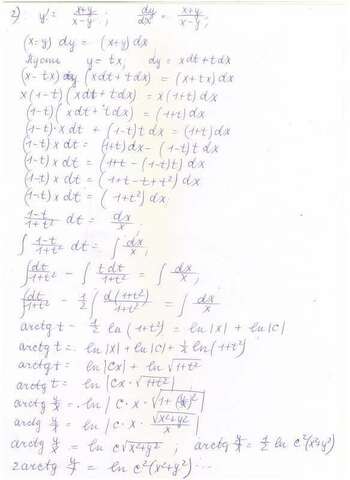 2) y' = (x+y)/(x-y); dy/dx = (x+y)/(x-y)
(x-y) dy = (x+y) dx
Пусть y = tx, dy = xdt+tdx
(x-tx) dy (xdt+tdx) = (x+tx) dx
x(1-t)(xdt+tdx) = x(1+t) dx
(1-t)(xdt+tdx) = (1+t) dx
(1-t)·x dt + (1-t)t dx = (1+t) dx
(1-t)x dt = (1+t) dx - (1-t) t dx
(1-t) x dt = (1+t - (1-t)t) dx
(1-t) x dt = (1+t-t+t²) dx
(1-t) x dt = (1+t²) dx
(1-t)/(1+t²) dt = dx/x
∫ (1-t)/(1+t²) dt = ∫ dx/x,
∫ dt/(1+t²) - ∫ tdt/(1+t²) = ∫ dx/x,
∫ dt/(1+t²) - 1/2 ∫ d(1+t²)/(1+t²) = ∫ dx/x
arctg t - 1/2 ln (1+t²) = ln|x| + ln|C|
arctg t = ln|x| + ln|C| + 1/2 ln(1+t²)
arctg t = ln|Cx| + ln √(1+t²)
arctg t = ln|Cx·√(1+t²)|
arctg y/x = ln|C·x·√(1+(y/x)²)|
arctg y/x = ln|C·x·√(x²+y²)/x|
arctg y/x = ln c√(x²+y²); arctg y/x = 1/2 ln c²(x²+y²)
2arctg y/x = ln c²(x²+y²)...